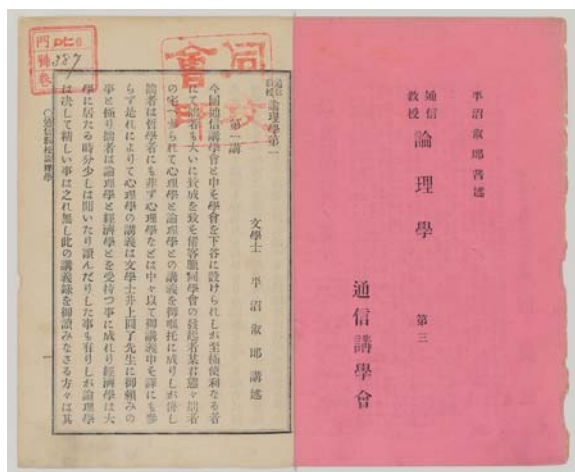 平沼淑郎著述
通信
教授
論理學
第三
通信講學會
通信
教授
論理學第一
第一講
文學士 平沼淑郎講述
今囘通信講學會と申を學會を下谷に設けられしが至極便利なる者
にて拙者も大いに賛成を致を
同學會の發起者某君
拙者
の宅へ參られて心理學と論理學との講義を御囑托に成りしが併し
拙者は哲學者にも非ず心理學などは中々以て御講義申を譯にも參
らず是れによりて心理學の講義は文學士井上圓了先生に御頼みの
事と極り拙者は論理學と經濟學とを受持つ事に成れり經濟學は大
學に居たる時分少しは聞いたり讀んだりした事も有りしが論理學
は決して精しい事は之れ無し此の講義録を御讀みなさる方々は其
〇通信教授論理學
一